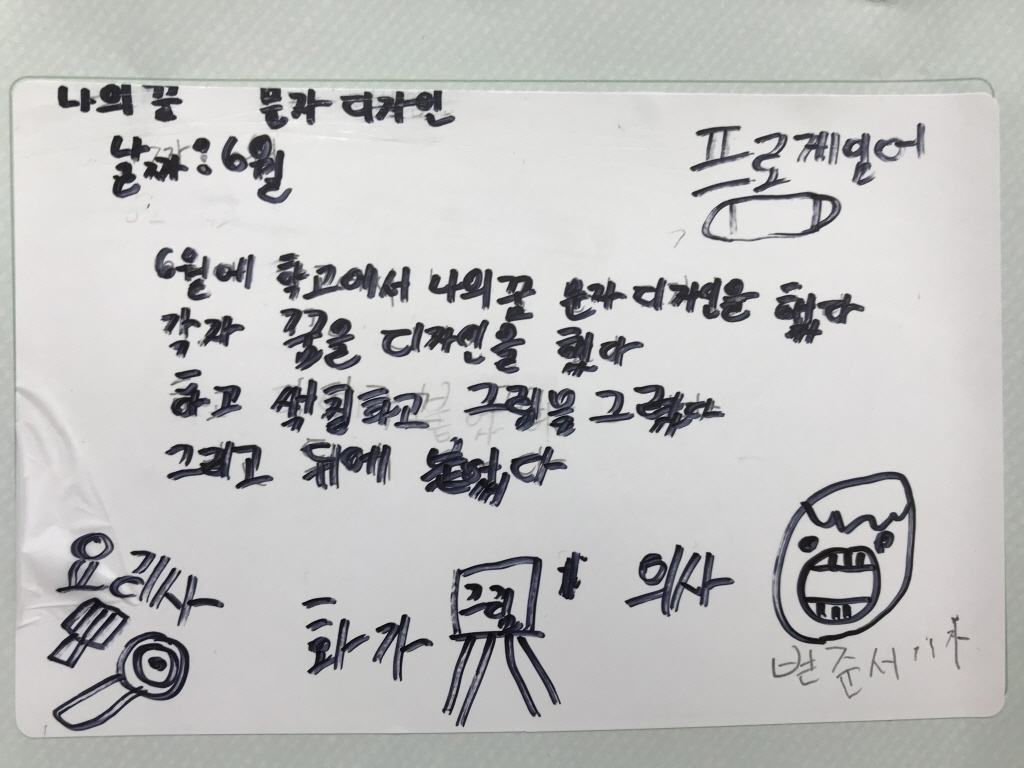 나의 꿈 문자 디자인
날짜:6월
프로게임어
6월에 학교에서 나의꿈 문자 디자인을 했다
각자 꿈을 디자인을 했다
하고 색칠하고 그림을 그렸다
그리고 뒤에 붙였다
요리사
화가
그림
의사
변준서기자